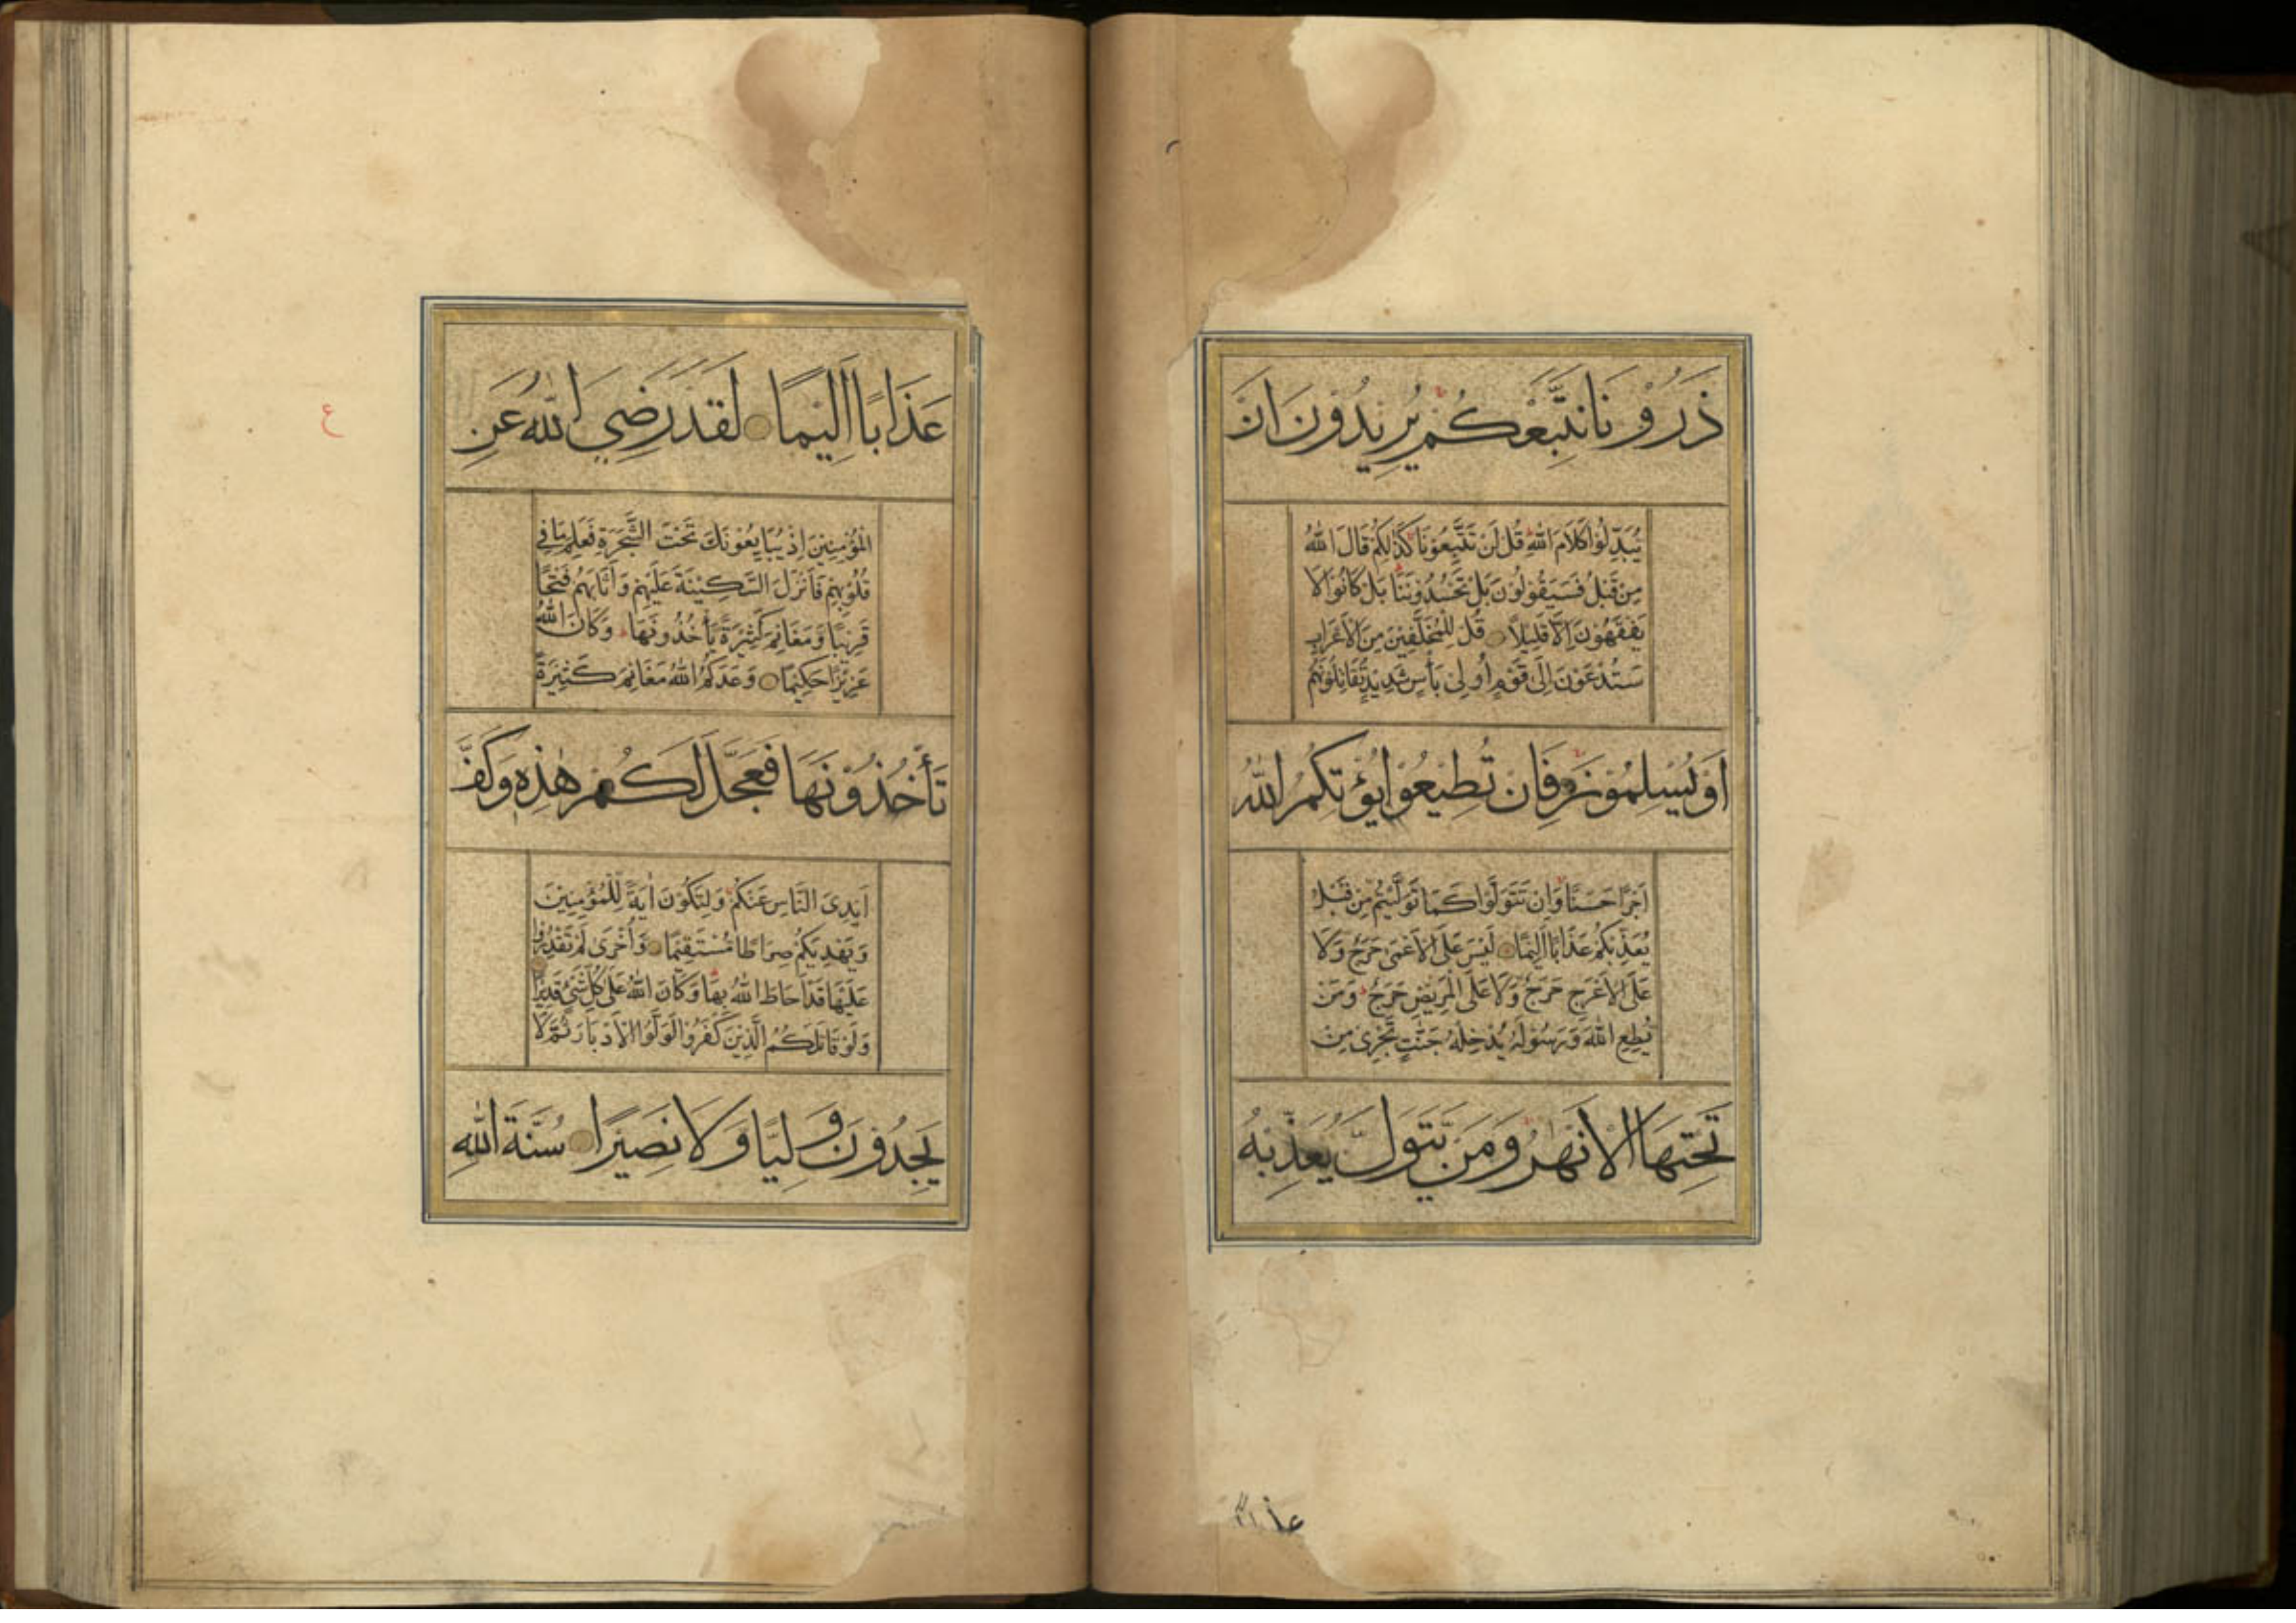 ذَرُوْنَا نَتَّبِعْكُمْ يُرِيْدُوْنَ اَنْ
يُبَدِّلُوْا كَلَامَ اللّٰهِ قُلْ لَنْ تَتَّبِعُوْنَا كَذٰلِكُمْ قَالَ اللّٰهُ
مِنْ قَبْلُ فَسَيَقُوْلُوْنَ بَلْ تَحْسُدُوْنَنَا بَلْ كَانُوْا لَا
يَفْقَهُوْنَ اِلَّا قَلِيْلًا قُلْ لِلْمُخَلَّفِيْنَ مِنَ الْاَعْرَابِ
سَتُدْعَوْنَ اِلٰى قَوْمٍ اُولِىْ بَأْسٍ شَدِيْدٍ تُقَاتِلُوْنَهُمْ
اَوْ يُسْلِمُوْنَ فَاِنْ تُطِيْعُوْا يُؤْتِكُمُ اللّٰهُ
اَجْرًا حَسَنًا وَاِنْ تَتَوَلَّوْا كَمَا تَوَلَّيْتُمْ مِنْ قَبْلُ
يُعَذِّبْكُمْ عَذَابًا اَلِيْمًا لَيْسَ عَلَى الْاَعْمٰى حَرَجٌ وَلَا
عَلَى الْاَعْرَجِ حَرَجٌ وَلَا عَلَى الْمَرِيْضِ حَرَجٌ وَمَنْ
يُطِعِ اللّٰهَ وَرَسُوْلَهُ يُدْخِلْهُ جَنّٰتٍ تَجْرِىْ مِنْ
تَحْتِهَا الْاَنْهٰرُ وَمَنْ يَتَوَلَّ يُعَذِّبْهُ
عذابا
عَذَابًا اَلِيْمًا لَقَدْ رَضِيَ اللّٰهُ عَنِ
الْمُؤْمِنِيْنَ اِذْ يُبَايِعُوْنَكَ تَحْتَ الشَّجَرَةِ فَعَلِمَ مَا فِي
قُلُوْبِهِمْ فَاَنْزَلَ السَّكِيْنَةَ عَلَيْهِمْ وَاَثَابَهُمْ فَتْحًا
قَرِيْبًا وَمَغَانِمَ كَثِيْرَةً يَأْخُذُوْنَهَا وَكَانَ اللّٰهُ
عَزِيْزًا حَكِيْمًا وَعَدَكُمُ اللّٰهُ مَغَانِمَ كَثِيْرَةً
تَأْخُذُوْنَهَا فَعَجَّلَ لَكُمْ هٰذِهٖ وَكَفَّ
اَيْدِىَ النَّاسِ عَنْكُمْ وَلِتَكُوْنَ اٰيَةً لِلْمُؤْمِنِيْنَ
وَيَهْدِيَكُمْ صِرَاطًا مُسْتَقِيْمًا وَاُخْرٰى لَمْ تَقْدِرُوْا
عَلَيْهَا قَدْ اَحَاطَ اللّٰهُ بِهَا وَكَانَ اللّٰهُ عَلٰى كُلِّ شَيْءٍ قَدِيْرًا
وَلَوْ قَاتَلَكُمُ الَّذِيْنَ كَفَرُوْا لَوَلَّوُا الْاَدْبَارَ ثُمَّ لَا
يَجِدُوْنَ وَلِيًّا وَلَا نَصِيْرًا سُنَّةَ اللّٰهِ
ع